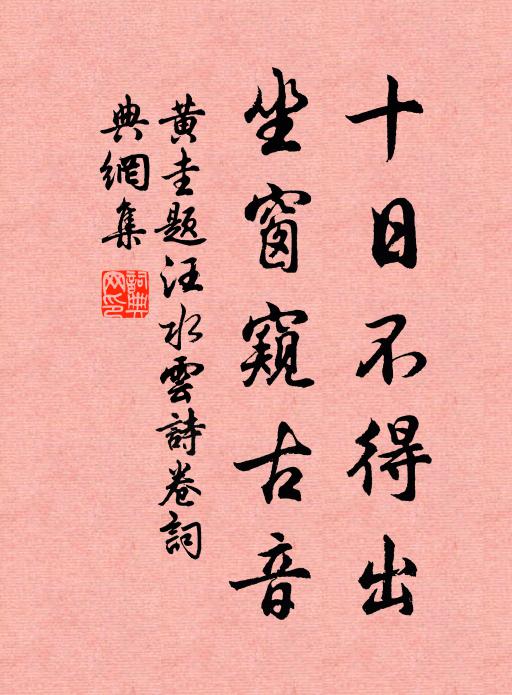 十日不得出
坐窗窺古音
黄圭題汪水雲詩卷詞
典網集
詞典
网印